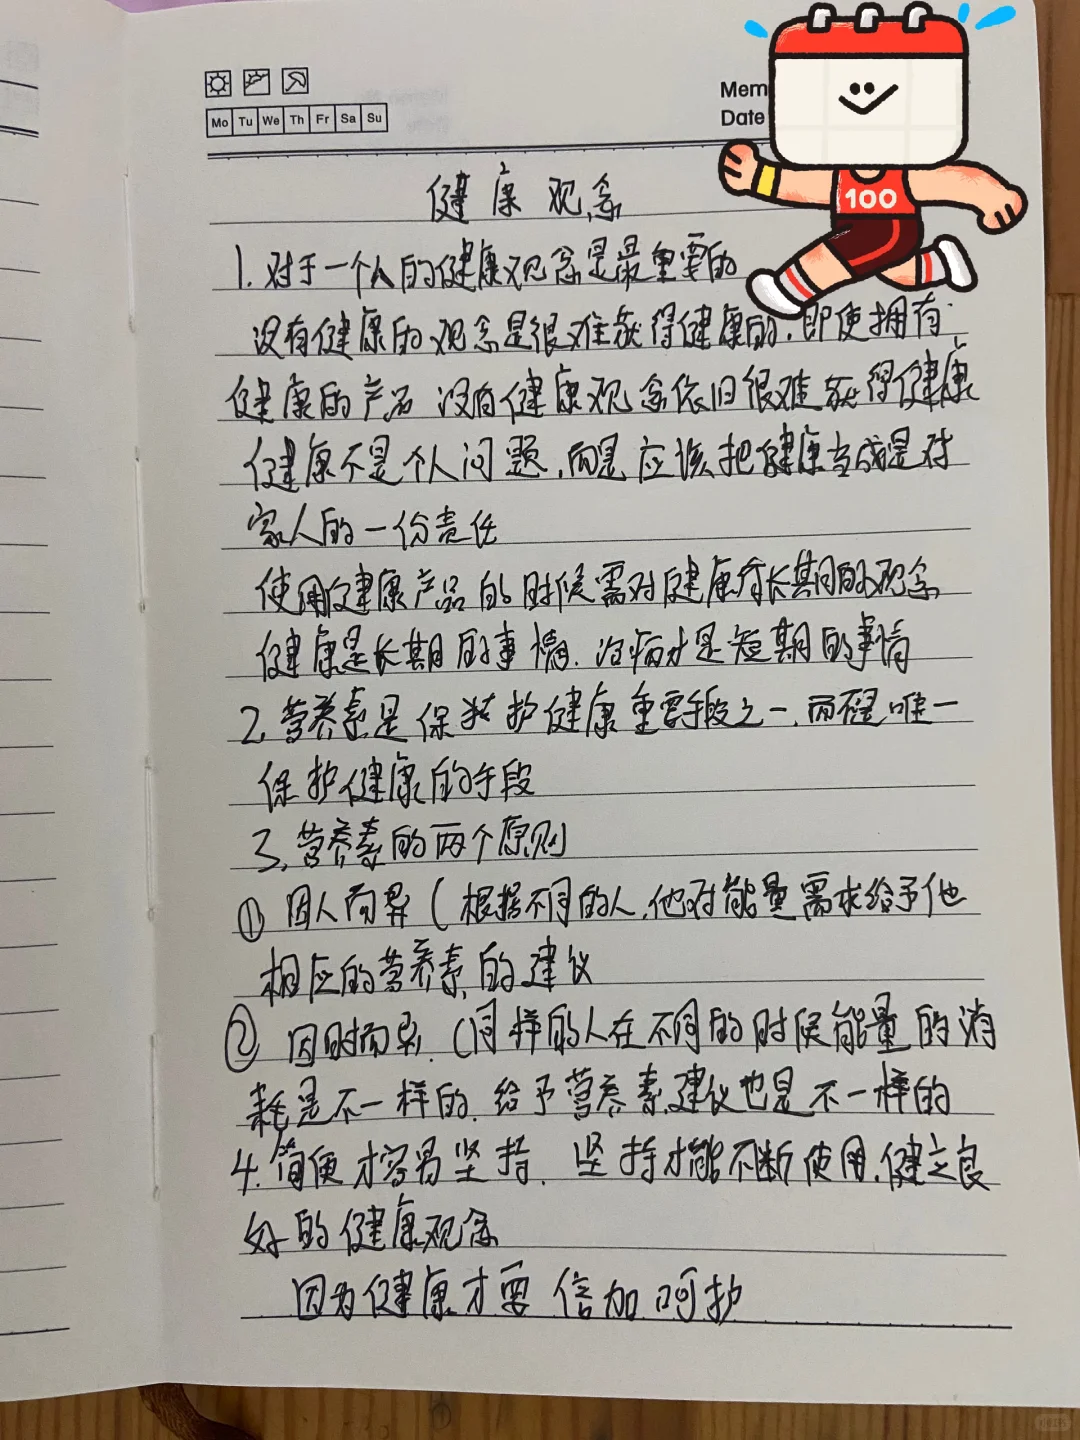 Mo Tu We Th Fr Sa Su
Mem
Date
100
健康观念
1.对于一个人的健康观念是最重要的
没有健康的观念是很难获得健康的,即使拥有
健康的产品 没有健康观念依旧很难获得健康
健康不是个人问题,而是应该把健康当成是对
家人的一份责任
使用健康产品的时候需对健康有长期的观念
健康是长期的事情.治病才是短期的事情
2.营养素是保护健康重要手段之一,而不是唯一
保护健康的手段
3.营养素的两个原则
①因人而异(根据不同的人,他对能量需求给予他
相应的营养素的建议
②因时而异.(同样的人在不同的时候能量的消
耗是不一样的.给予营养素建议也是不一样的
4.简便才容易坚持.坚持才能不断使用.健立良
好的健康观念
因为健康才要倍加呵护